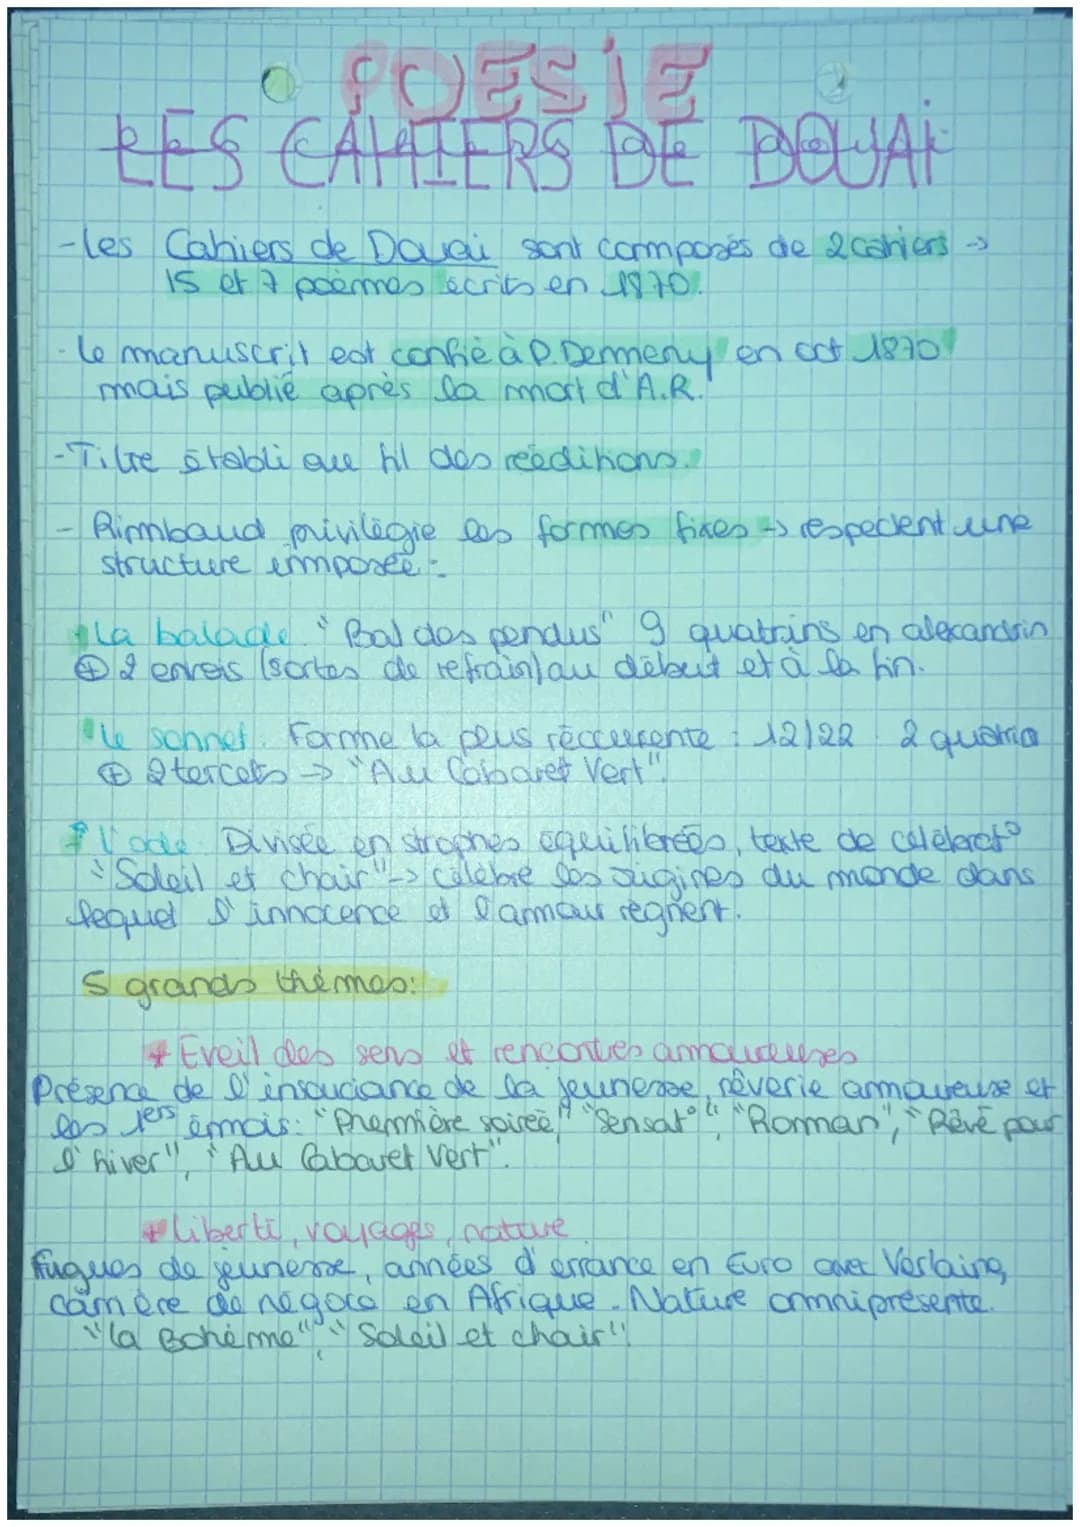 POESIE
LES CAHIERS DE DOUAI
-les Cahiers de Douai sont composés de 2 cahiers →
15 et 7 poèmes écrits en 1870.
- le manuscrit est confié à P. Demeny en oct 1870
mais publié après la mort d'A.R.
-Titre établi au fil des rééditions.
- Rimbaud privilégie les formes fixes → respectent une
structure imposée :
La balade. "Bal des pendus" 9 quatrains en alexandrin
⊕ 2 envois (sortes de refrain) au début et à la fin.
le sonnet. Forme la plus réccurente : 12/22. 2 quatrio
⊕ 2 tercets → "Au Cabaret Vert".
L'ode. Divisée en strophes équilibrées, texte de célébrat°
"Soleil et chair" → célèbre les origines du monde dans
lequel l'innocence et l'amour règnent.
5 grands thèmes:
* Eveil des sens et rencontres amoureuses
Présence de l'insouciance de la jeunesse, rêverie amoureuse et
les 1ers émois: "Première soirée", "Sensat°", "Roman", "Rêvé pour
l'hiver", "Au Cabaret Vert".
* Liberté, voyages, nature.
Fugues de jeunesse, années d'errance en Euro avec Verlaine,
carrière de négoce en Afrique. Nature omniprésente.
"la Bohème", "Soleil et chair".